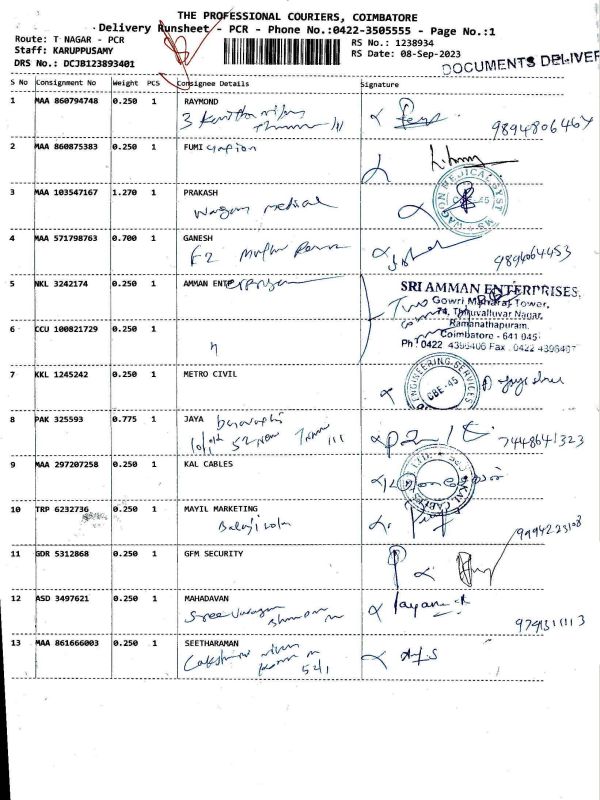 THE PROFESSIONAL COURIERS, COIMBATORE
Delivery Runsheet - PCR - Phone No.:0422-3505555 - Page No.:1
Route: T NAGAR - PCR
RS No.: 1238934
Staff: KARUPPUSAMY
RS Date: 08-Sep-2023
DRS No.: DCJB123893401
DOCUMENTS DELIVER
S No Consignment No Weight PCS Consignee Details Signature
1 MAA 860794748 0.250 1 RAYMOND
9894806464
2 MAA 860875383 0.250 1 FUMI
3 MAA 103547167 1.270 1 PRAKASH
Wagon medical
WAGON MEDICAL SYST
CBE-45
4 MAA 571798763 0.700 1 GANESH
F2
9894064453
5 NKL 3242174 0.250 1 AMMAN ENTERPRISES
SRI AMMAN ENTERPRISES,
Two
Gowri Maharaj Tower,
74, Thiruvalluvar Nagar,
6 CCU 100821729 0.250 1
Ramanathapuram.
Coimbatore - 641 045
Ph : 0422 4396406 Fax : 0422 4396407
7 KKL 1245242 0.250 1 METRO CIVIL
ENGINEERING SERVICES
CBE-45
8 PAK 325593 0.775 1 JAYA
7448641323
9 MAA 297207258 0.250 1 KAL CABLES
KAL CABLES
10 TRP 6232736 0.250 1 MAYIL MARKETING
Balaji
9994223108
11 GDR 5312868 0.250 1 GFM SECURITY
12 ASD 3497621 0.250 1 MAHADAVAN
9791311113
13 MAA 861666003 0.250 1 SEETHARAMAN
541